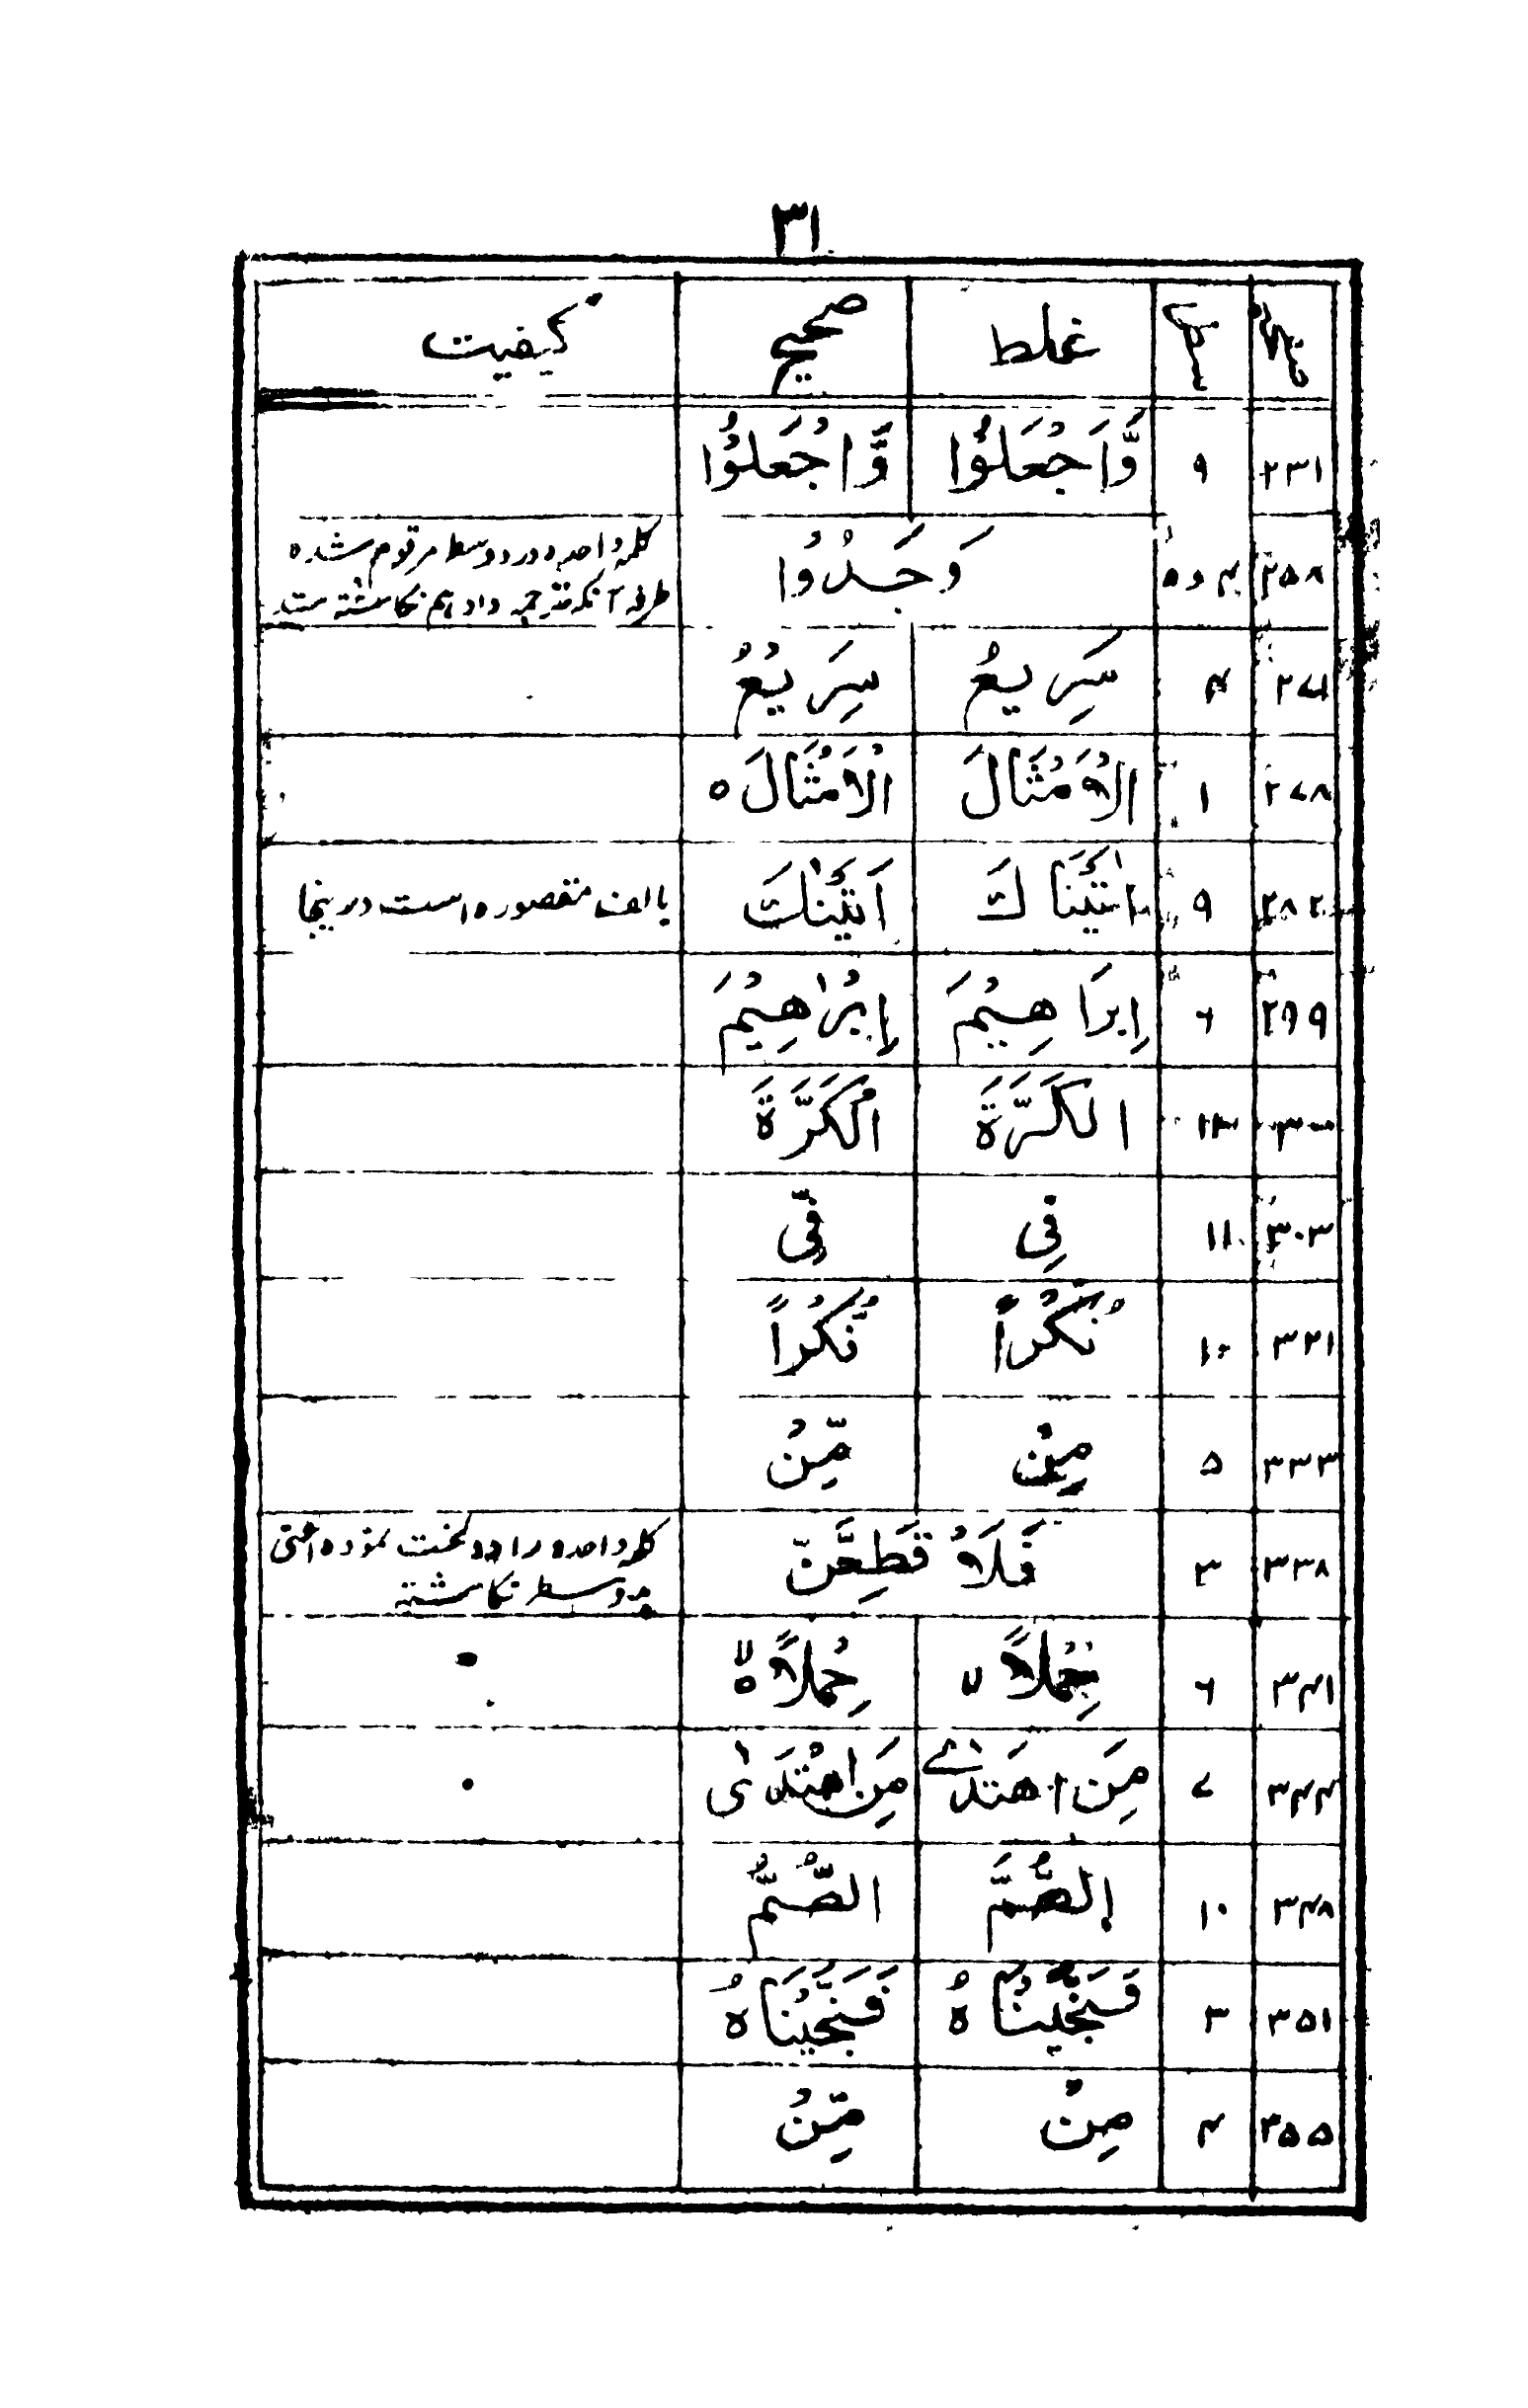 ۳۱
غلط صحیح کیفیت
۲۳۱ ۹ وَّاَجْعَلُوْا وَّاجْعَلُوْا
۲۵۸ ۴ و ۵ وَجَدُوْا کلمہ واحدہ در دو سطر مرقوم شدہ
طرفہ آنکہ ترجمہ داد ہم نگاشتہ شد
۲۷۱ ۴ سَرِیعُ سَرِیْعُ
۲۷۸ ۱ الْاَمْثَالَ الْاَمْثَالَ ہ
۲۸۲ ۹ اٰتَیْنَاكَ اٰتَیْنٰكَ با الف مقصورہ است درینجا
۲۹۹ ۶ اِبرَاهِیْمَ اِبْرٰهِیْمَ
۳۰۰ ۱۳ الکَرَّةَ الْکَرَّةَ
۳۰۳ ۱۱ فِی فِّی
۳۲۱ ۱۰ نُكْراً نُّكْراً
۳۳۳ ۵ مِنْ مِّنْ
۳۳۸ ۳ فَلَاُ قَطِعَنَّ کلمہ واحدہ را دو لخت نمودہ اعنی
بدو سطر نگاشتہ
۳۴۱ ۶ حِمْلاً لا حِمْلاً ہ لا
۳۴۴ ۷ مَنِ اهتَدٰے مَنِ اهْتَدٰی
۳۴۸ ۱۰ الصُّمَّ الصُّمُّ
۳۵۱ ۳ فَنَجَّیْنَاہُ فَنَجَّیْنَاہُ
۳۵۵ ۴ مِنْ مِّنْ